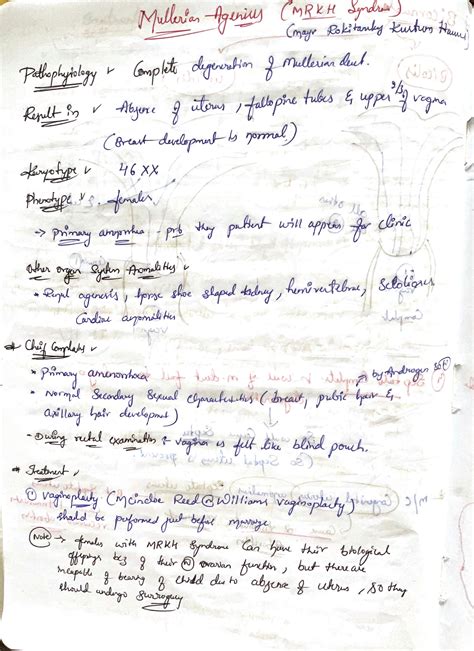 Mullerian Agenius (MRKH Syndrome)
(mayr Rokitansky Kustrons Hauus)
Pathophysiology Complete degeneration of Mullerian duct.
Result in Absence of uterus, fallopine tubes & upper 2/3 of vagina
(Breast development is normal)
Karyotype 46 XX
Phenotype females
→ primary amorrhea - prb they patient will appear for clinic
Other organ System Anomalities
• Renal agenesis, horse shoe shaped kidney, hemivertebrae, Scoliosis
Cardiac anomalities
* Chief Complaints
• Primary amenorrhoea
• Normal Secondary Sexual Characteristics (breast, pubic hair &
axillary hair developmet)
by Androgen
- During rectal examination vagina is felt like blind pouch.
* Treatment
① vaginoplasty (Mcindoe Reed William vaginoplasty)
should be performed just before marriage
Note → females with MRKH Syndrome Can have their biological
offsprings bcz of their ovarian function, but there are
incapable of bearing of child due to absence of uterus, so they
should undergo Surrogacy
M/C